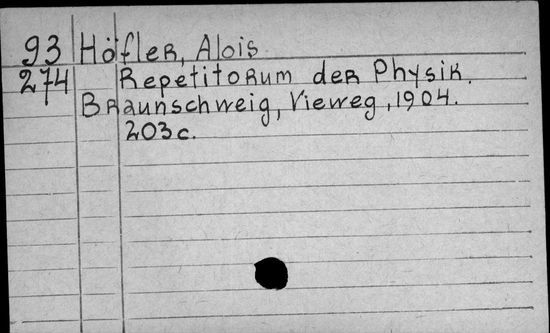 93 Höfler, Alois
274 Repetitorum der Physik.
Braunschweig, Vieweg, 1904.
203c.